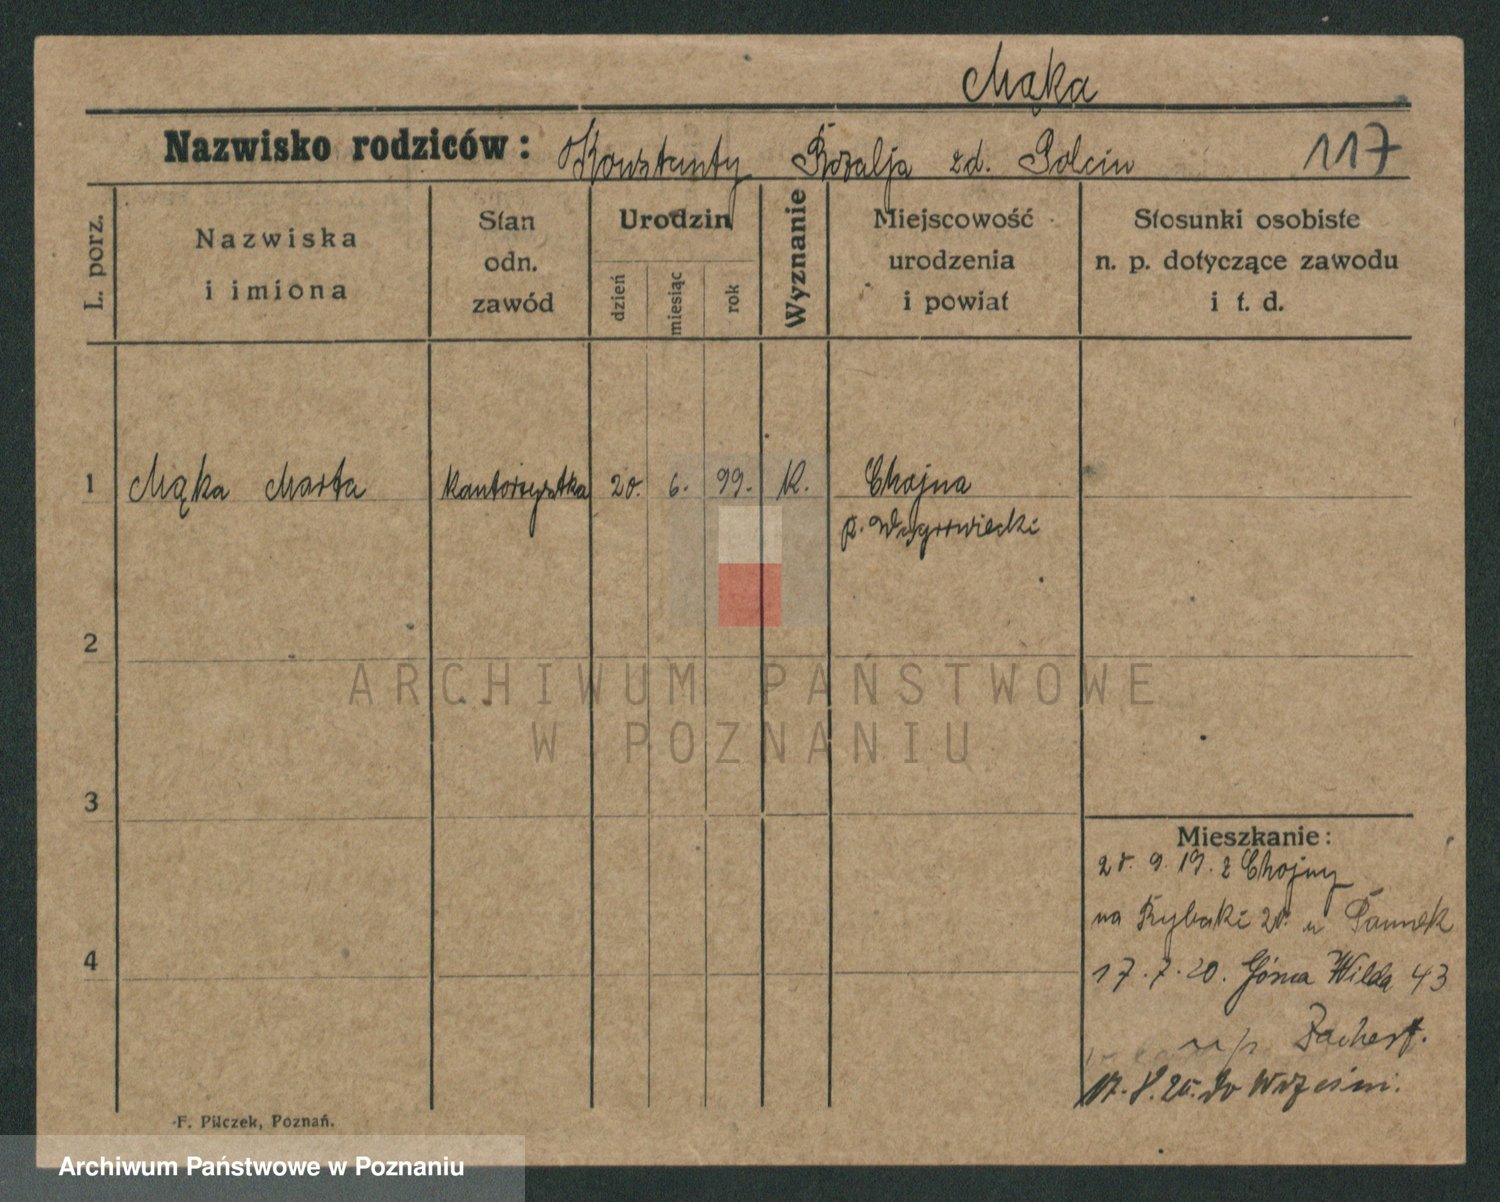 Mąka
Nazwisko rodziców: Konstanty Rozalja zd. Polcin 117
L. porz.
Nazwiska
i imiona
Stan
odn.
zawód
Urodzin
dzień
miesiąc
rok
Wyznanie
Miejscowość
urodzenia
i powiat
Stosunki osobiste
n. p. dotyczące zawodu
i t. d.
1 Mąka Marta kantorzystka 20. 6. 99. K. Chojna
p. Wągrowiecki
2
ARCHIWUM PAŃSTWOWE
W POZNANIU
3
4
Mieszkanie:
9. 19. z Chojny
na Rybaki 20. u
17. 7. 20. Górna Wilda 43
u p.
17. 8. 20. do Wrześni.
F. Pilczek, Poznań.
Archiwum Państwowe w Poznaniu